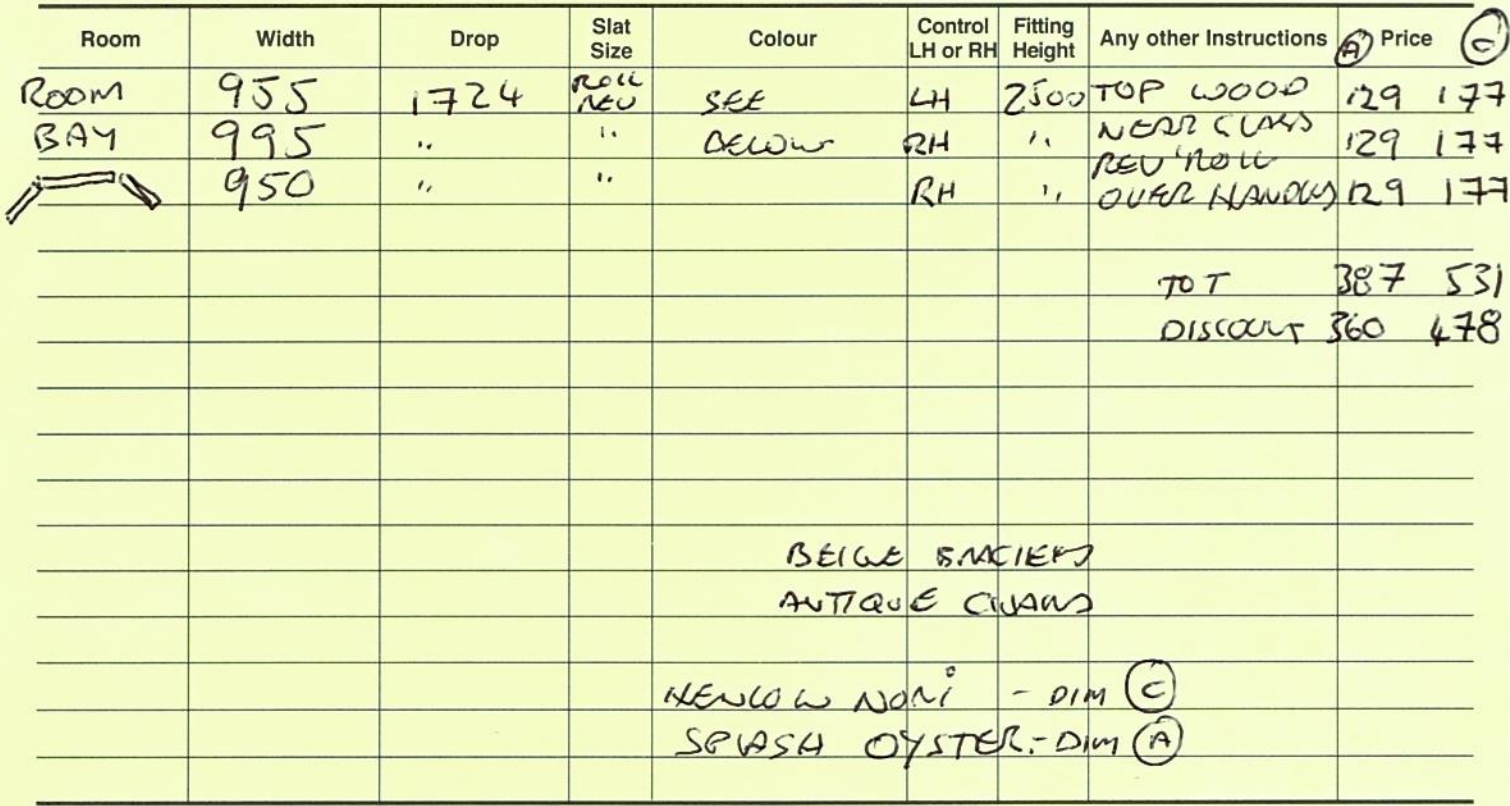 Room Width Drop Slat Size Colour Control LH or RH Fitting Height Any other Instructions (A) Price (C)
ROOM 955 1724 ROLL REV SEE LH 2500 TOP WOOD 129 177
BAY 995 " " BELOW RH " NEAR GLASS 129 177
950 " " RH " REV ROLL OVER HANDLES 129 177
TOT 387 531
DISCOUNT 360 478
BEIGE
ANTIQUE
HENLOW NORI - DIM (C)
SPLASH OYSTER - DIM (A)